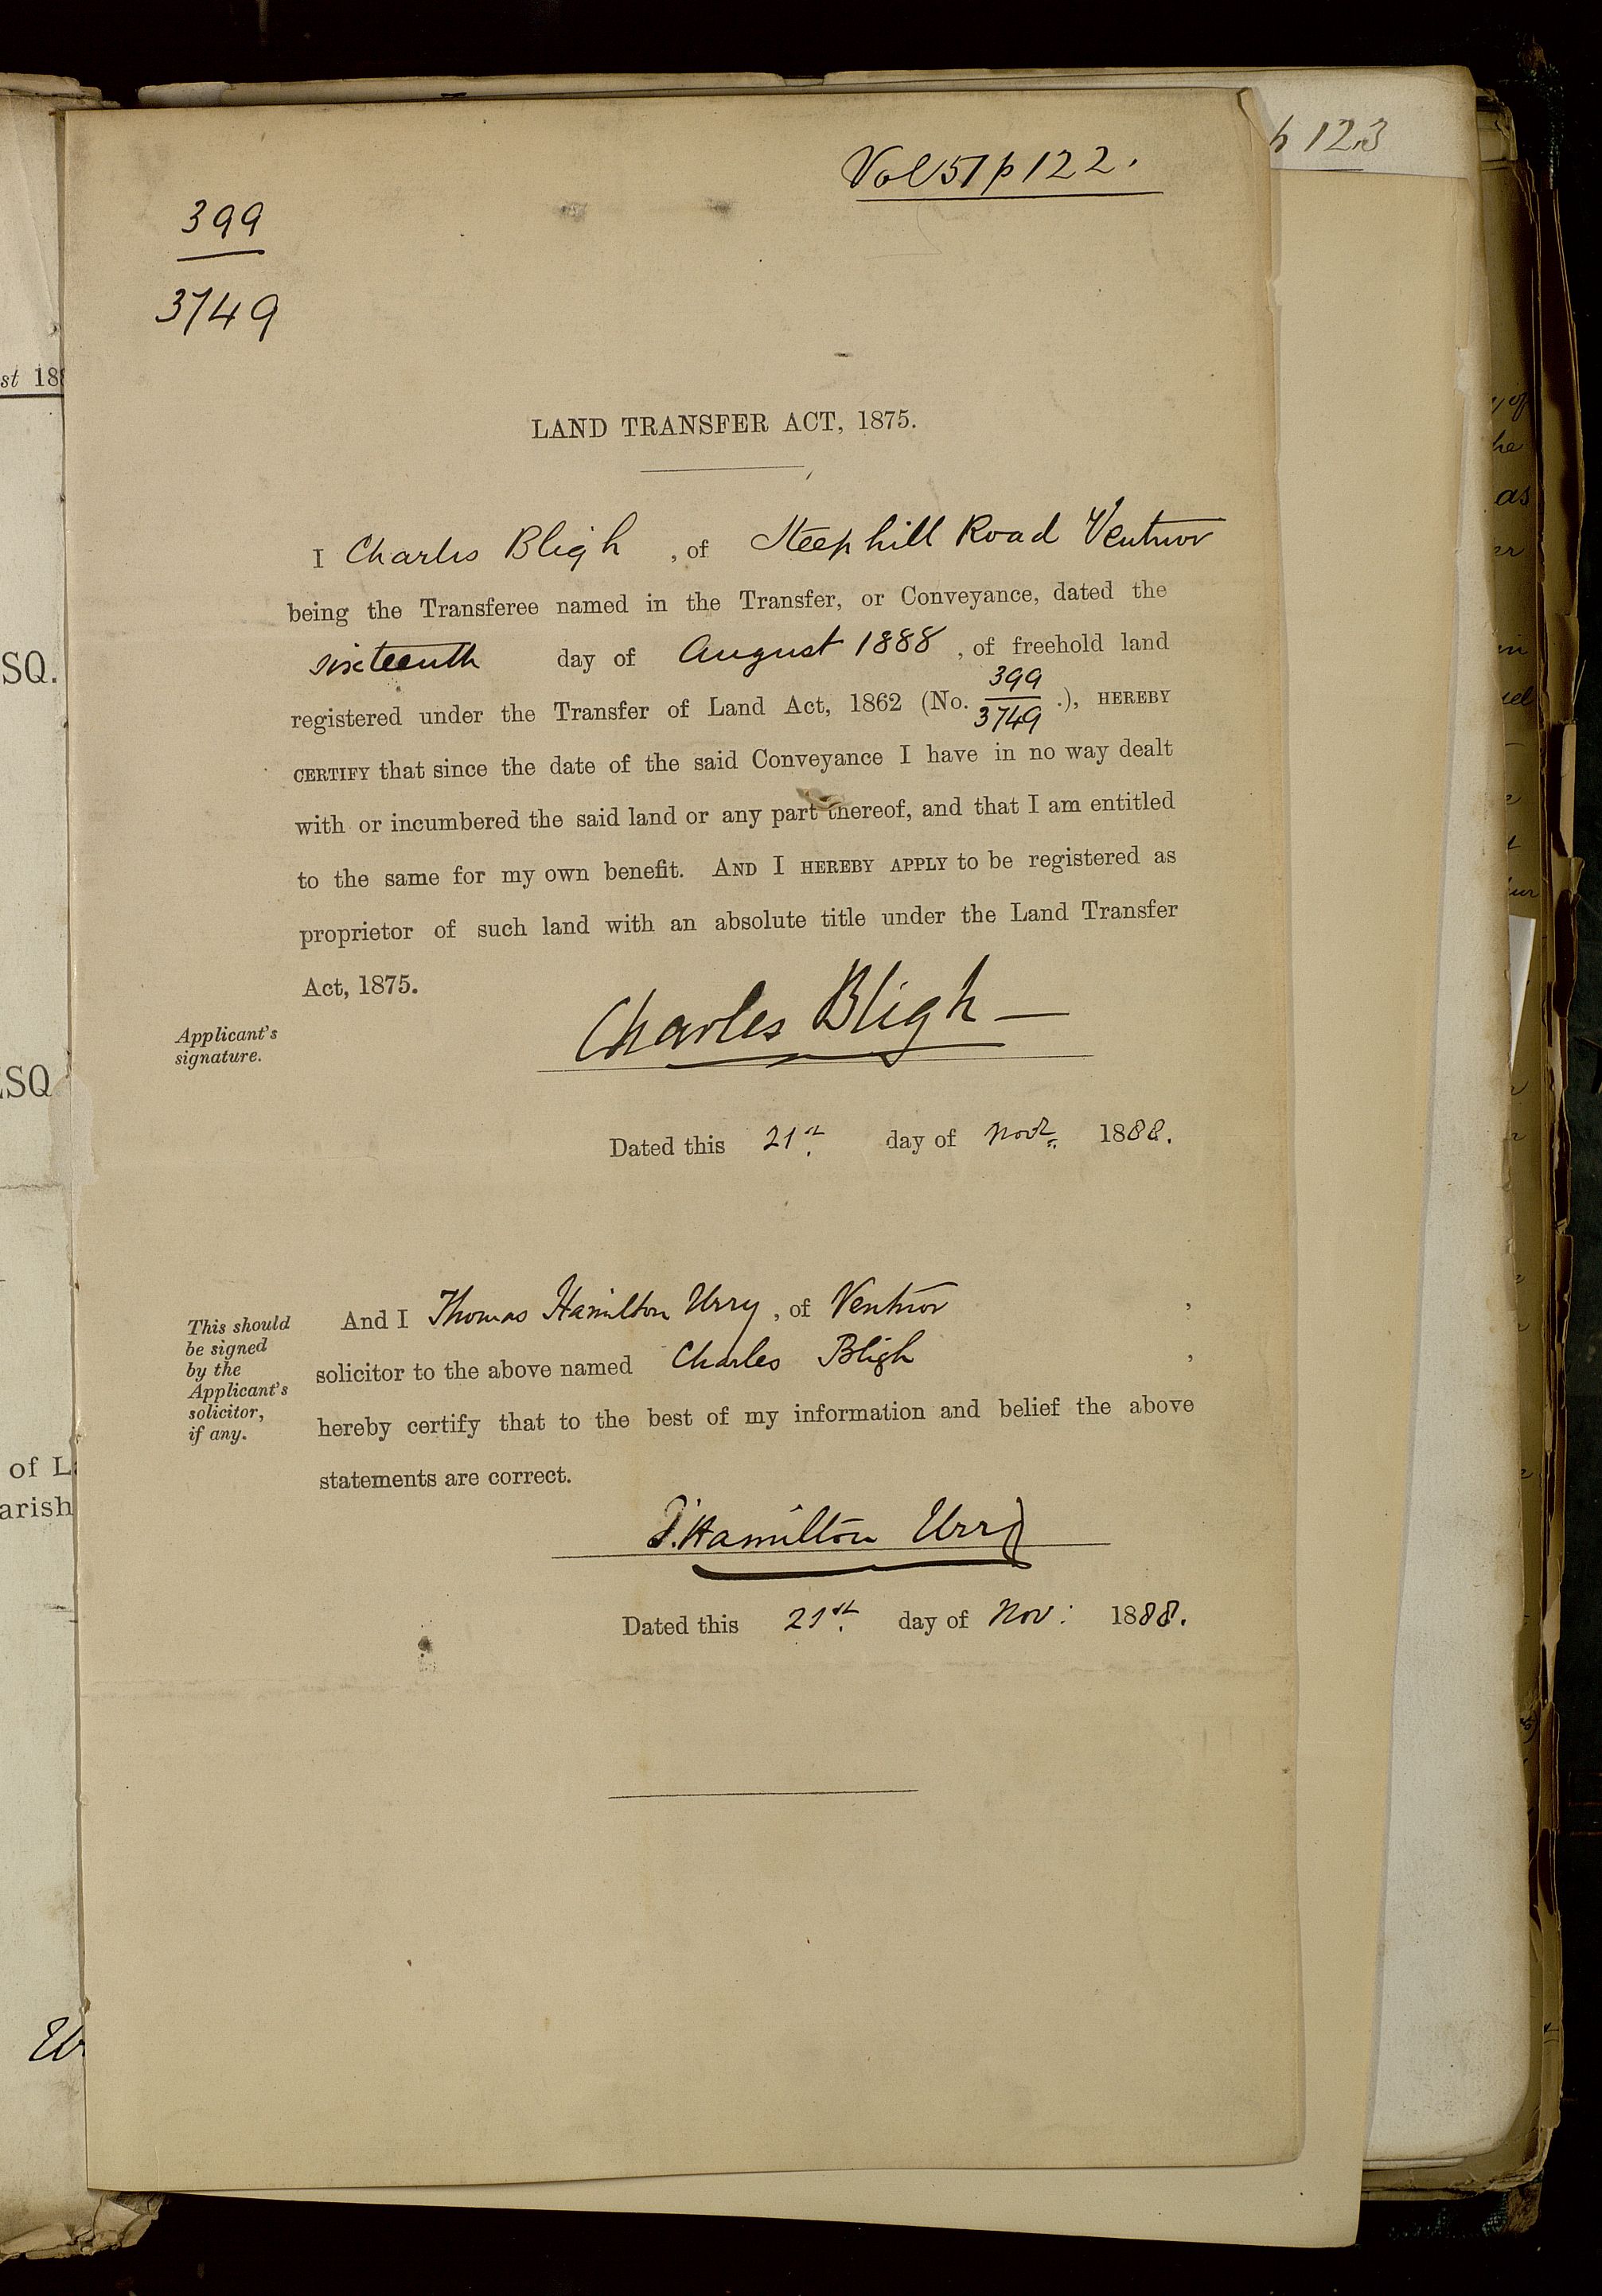 Vol 51 p 122.
p 123
399
3749
st 188
LAND TRANSFER ACT, 1875.
I Charles Bligh , of Steephill Road Ventnor
being the Transferee named in the Transfer, or Conveyance, dated the
sixteenth day of August 1888 , of freehold land
registered under the Transfer of Land Act, 1862 (No. 399/3749 .), HEREBY
CERTIFY that since the date of the said Conveyance I have in no way dealt
with or incumbered the said land or any part thereof, and that I am entitled
to the same for my own benefit. AND I HEREBY APPLY to be registered as
proprietor of such land with an absolute title under the Land Transfer
Act, 1875.
Applicant's
signature.
Charles Bligh
Dated this 21st day of Novr 1888.
This should
be signed
by the
Applicant's
solicitor,
if any.
And I Thomas Hamilton Urry , of Ventnor ,
solicitor to the above named Charles Bligh ,
hereby certify that to the best of my information and belief the above
statements are correct.
T. Hamilton Urry
Dated this 21st day of Nov: 1888.
SQ.
ESQ
of L
arish
as